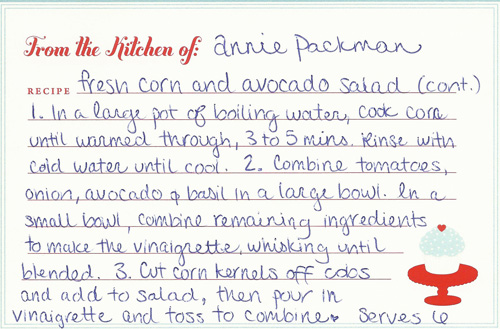 From the Kitchen of: annie Packman
RECIPE fresh corn and avocado salad (cont.)
1. In a large pot of boiling water, cook corn
until warmed through, 3 to 5 mins. Rinse with
cold water until cool. 2. Combine tomatoes,
onion, avocado & basil in a large bowl. In a
small bowl, combine remaining ingredients
to make the vinaigrette, whisking until
blended. 3. Cut corn kernels off cobs
and add to salad, then pour in
vinaigrette and toss to combine. Serves 6